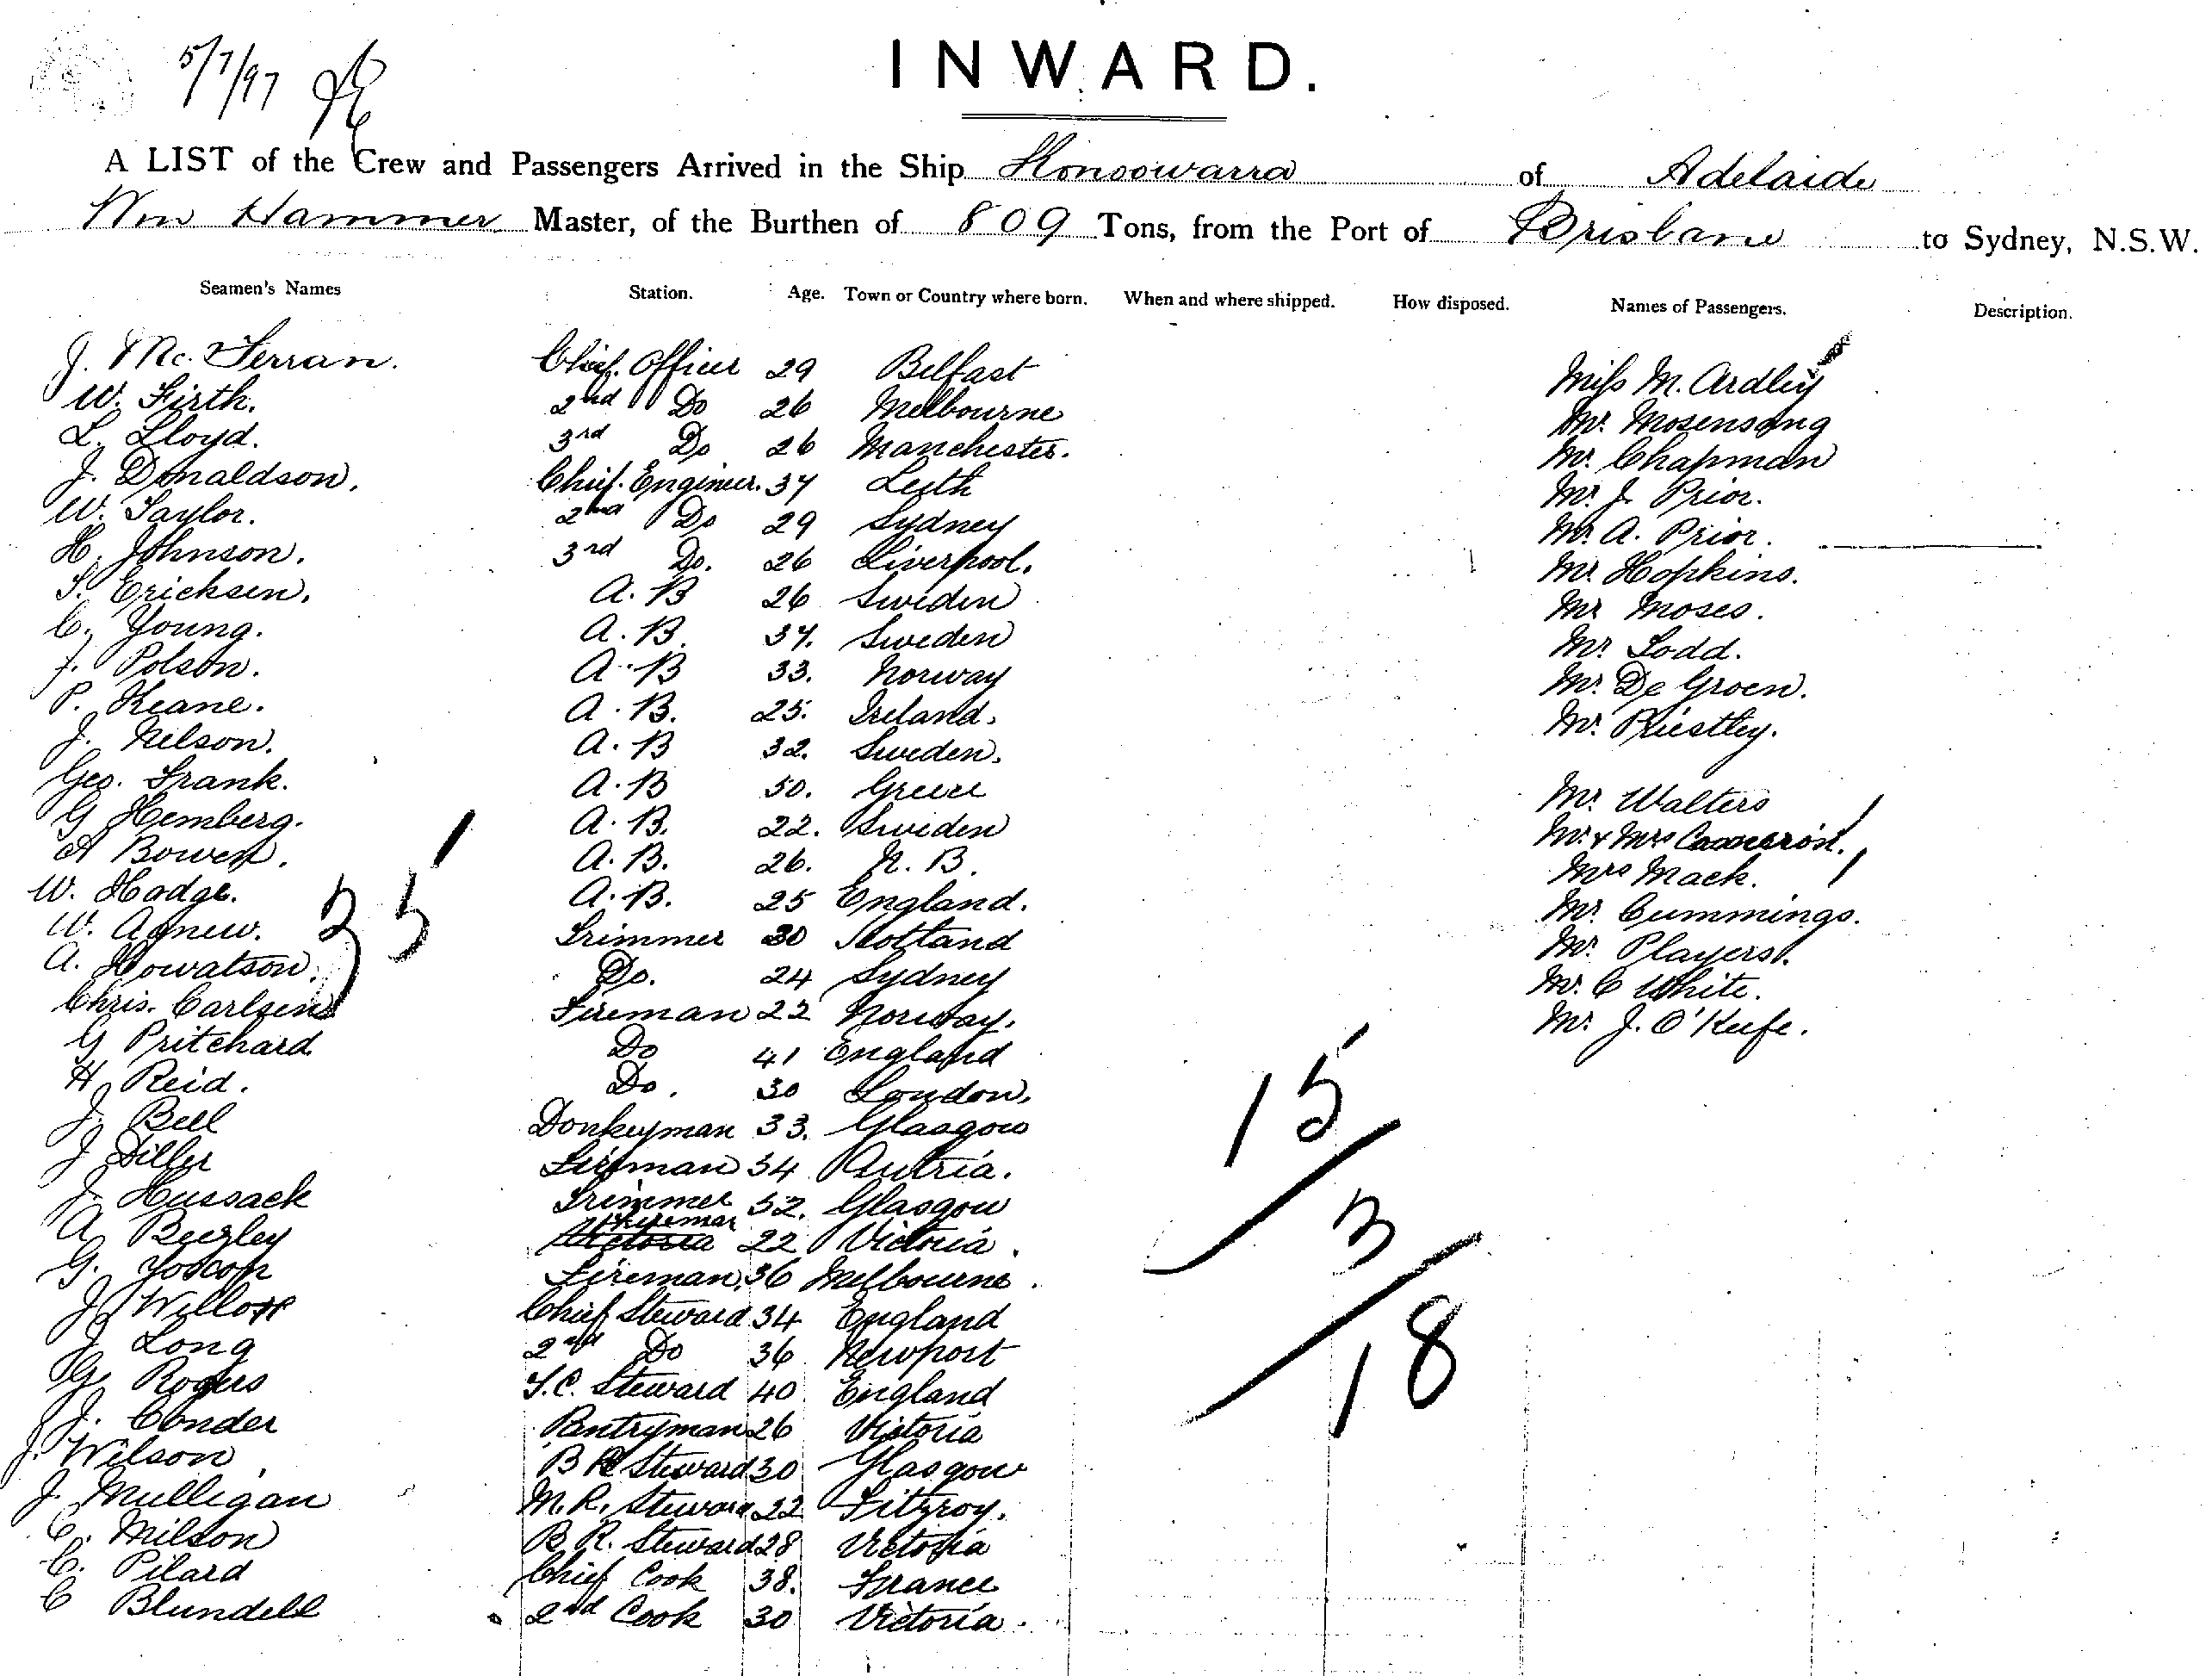 5/7/97
INWARD.
A LIST of the Crew and Passengers Arrived in the Ship Konoowarra of Adelaide
Wm Hammer Master, of the Burthen of 809 Tons, from the Port of Brisbane to Sydney, N.S.W.
Seamen's Names Station. Age. Town or Country where born. When and where shipped. How disposed. Names of Passengers. Description.
J. McFerran. Chief Officer 29 Belfast Miss M. Ardley
W. Firth. 2nd Do 26 Melbourne Mr. Mosensong
L. Lloyd. 3rd Do 26 Manchester. Mr. Chapman
J. Donaldson. Chief Engineer. 37 Leith Mr. J. Prior.
W. Taylor. 2nd Do 29 Sydney Mr. A. Prior.
H. Johnson. 3rd Do. 26 Liverpool. Mr. Hopkins.
S. Ericksen. A. B 26 Sweden Mr Moses.
C. Young. A. B. 37. Sweden Mr Todd.
J. Polson. A. B 33. Norway Mr. De Groen.
P. Keane. A. B. 25. Ireland. Mr. Priestley.
J. Nelson. A. B 32. Sweden.
Geo. Frank. A. B 50. Greece Mr. Walters
G Hemberg. A. B. 22. Sweden Mr. & Mrs Cameron.
A Bowen. A. B. 26. N. B. Mrs Mack.
W. Hodge. A. B. 25 England. Mr. Cummings.
W. Agnew. Trimmer 30 Scotland Mr. Players.
A. Howatson. Do. 24 Sydney Mr. C White.
Chris. Carlsen Fireman 22 Norway. Mr. J. O'Keefe.
35
G Pritchard Do 41 England
H. Reid. Do. 30 London.
J. Bell Donkeyman 33. Glasgow
J Diller Fireman 34 Autria.
J. Hussack Trimmer 52. Glasgow
A Beegley Fireman 22 Victoria.
G. Fireman. 36 Melbourne.
J. Willox Chief Steward 34 England
J Long 2nd Do 36 Newport
G. Rogers S.C. Steward 40 England
J. Conder Pantryman 26 Victoria
J. Wilson B R Steward 30 Glasgow
J. Mulligan M. R. Steward 22 Fitzroy.
C. Milson B R. Steward 28 Victoria
C. Pilard Chief Cook 38. France
C Blundell 2nd Cook 30 Victoria.
15
3
18